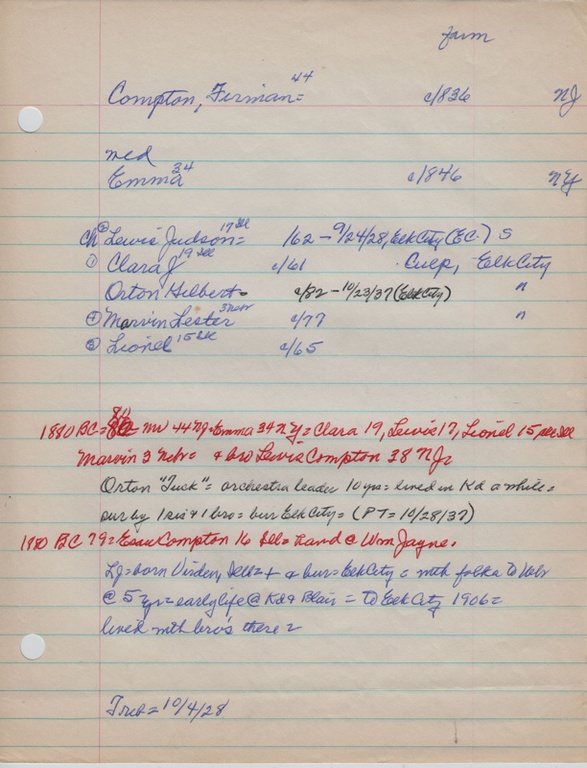 farm
Compton, Firman = 44 c/836 NJ
med
Emma 34 c/846 NY
Ch ② Lewis Judson = 17 Ill 162 - 9/24/28, Elk City (E.C.) S
① Clara J 19 Ill c/61 Culp, Elk City
Orton Hilbert = c/82 - 10/23/37 (Elk City) "
④ Marvin Lester 3 Nebr c/77 "
③ Lionel 15 Ill c/65
1880 BC = 86 = mv 44 NJ = Emma 34 NY = Clara 19, Lewis 17, Lionel 15 all Ill
Marvin 3 Nebr = + bro Lewis Compton 38 NJ =
Orton "Tuck" = orchestra leader 10 yrs = lived in Kd a while =
sur by 1 sis & 1 bro = bur Elk City = (PT = 10/28/37)
1880 BC 79 = Esau Compton 16 Ill = hand @ Wm Jayne.
LJ = born Virden, Ill = + & bur = Elk City = mth folks to Nebr
@ 5 yrs = early life @ Kd & Blair = to Elk City 1906 =
lived mth bro's there =
Trib = 10/4/28